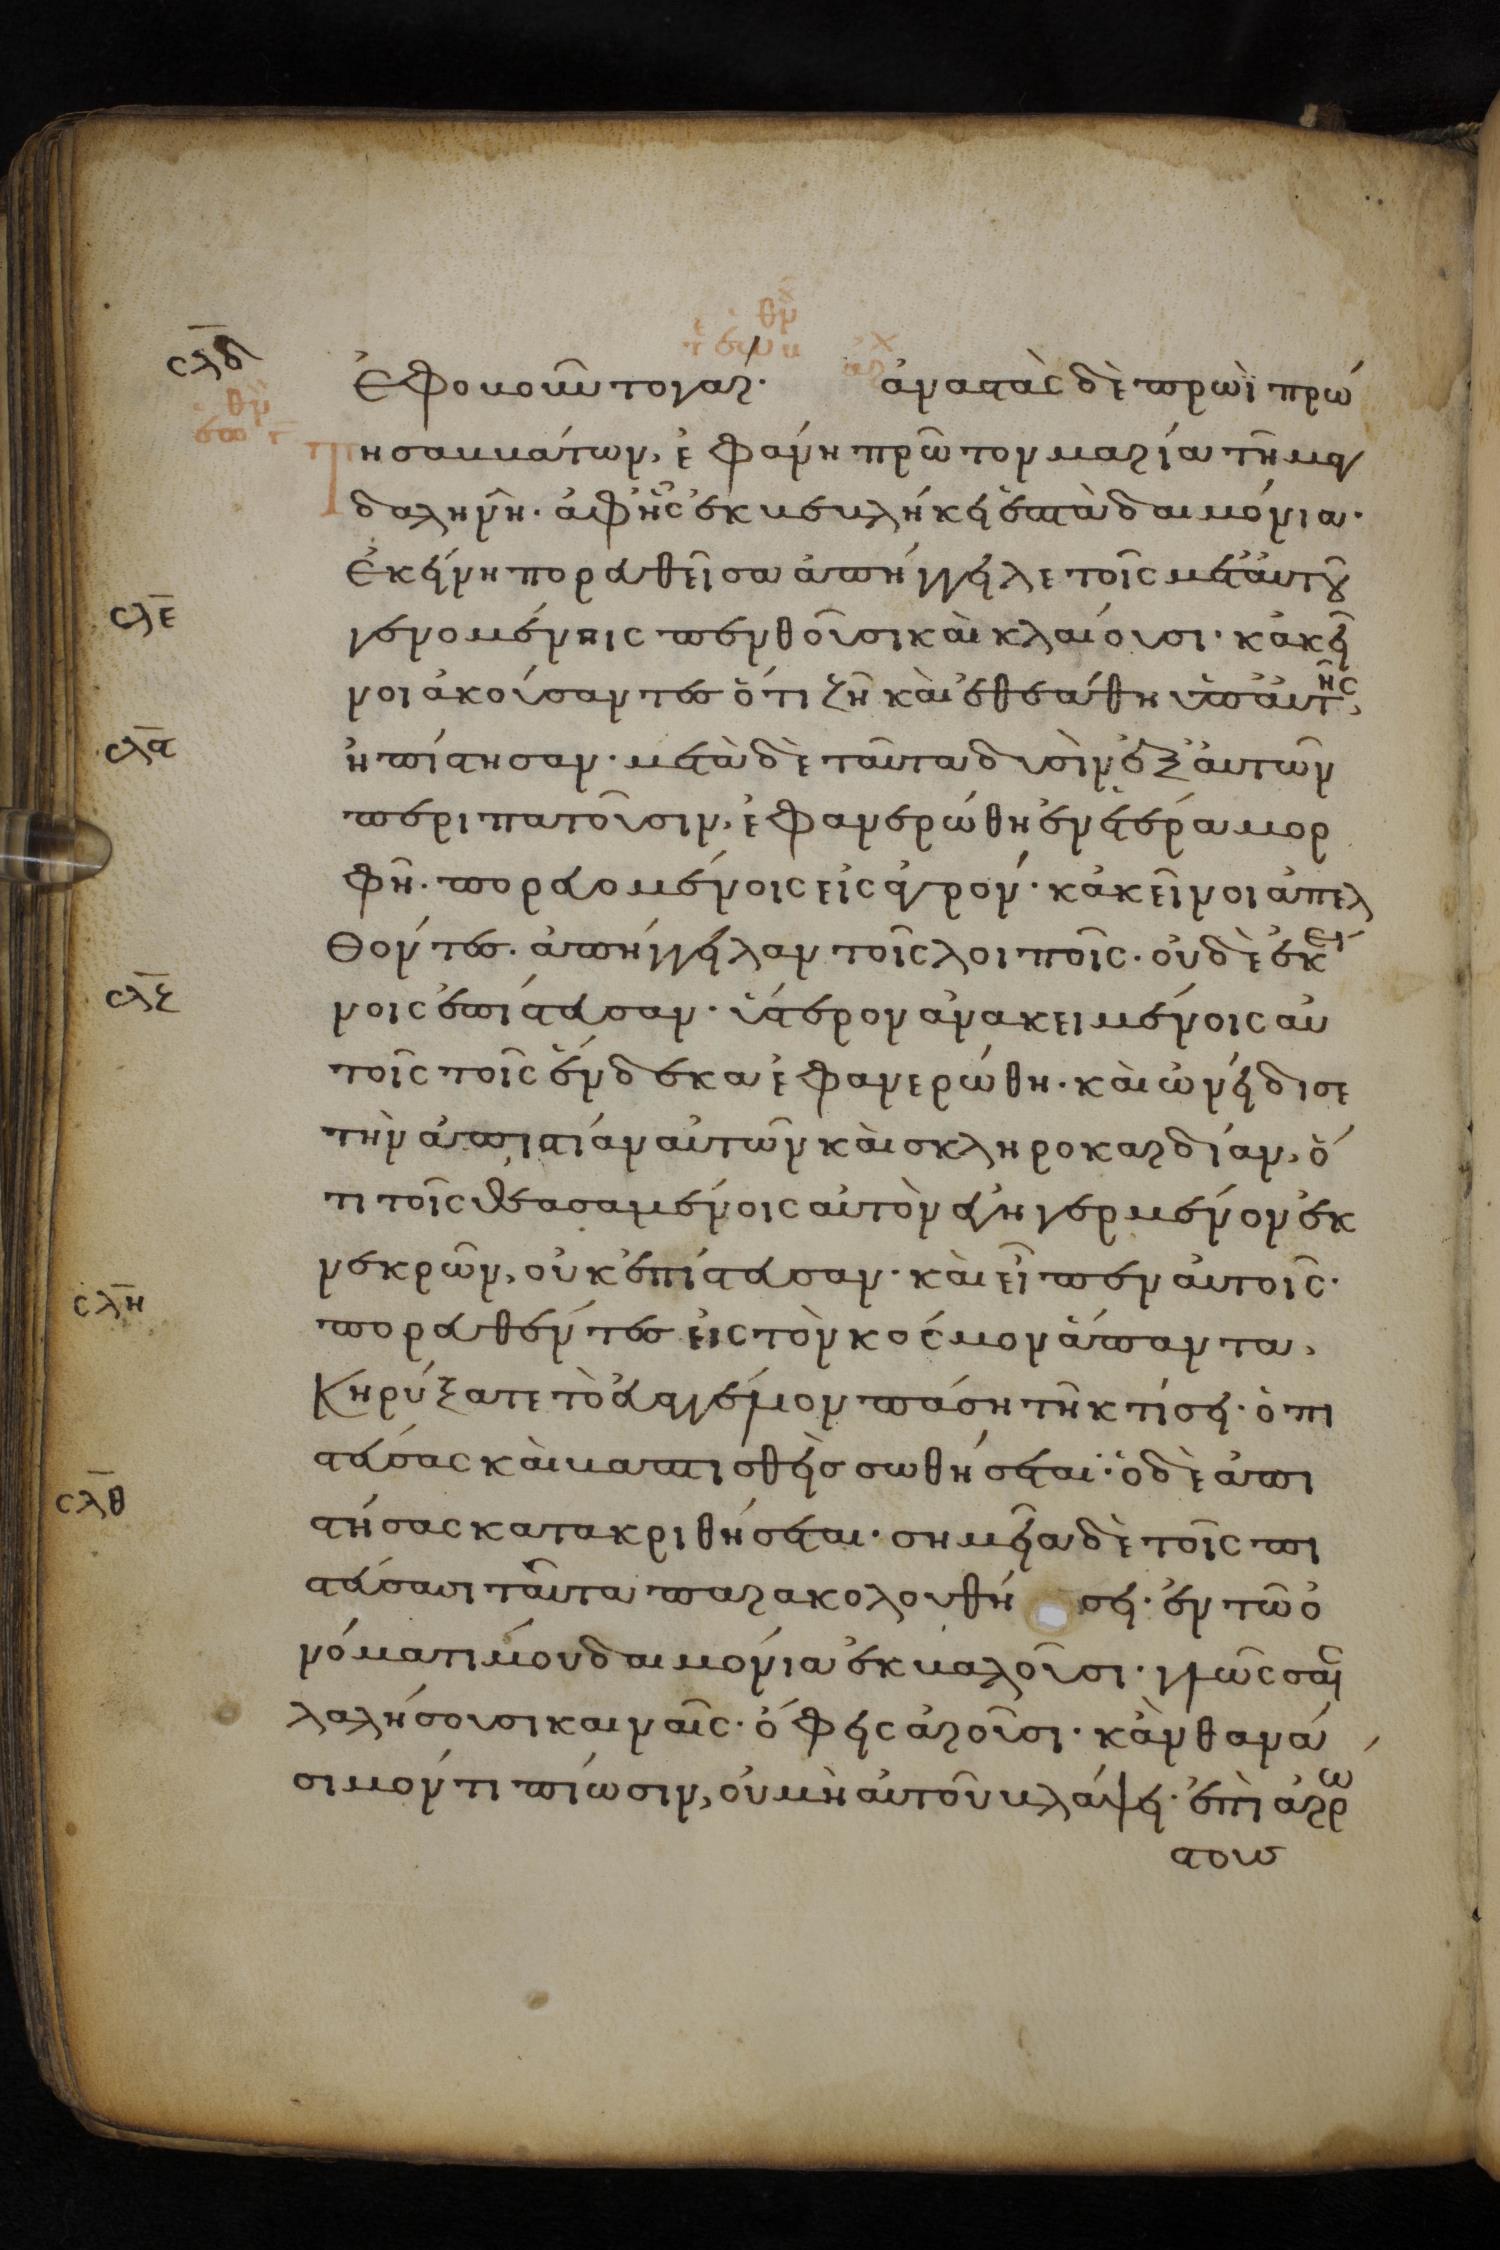 σλδ
ἐφοβοῦντο γάρ· ἀναστὰς δὲ πρωῒ πρώ
τη σαββάτων, ἐφάνη πρῶτον μαρία τῆ μαγ
δαληνῆ· ἀφ' ἧς ἐκβεβλήκει ἑπτὰ δαιμόνια·
ἐκείνη πορευθεῖσα ἀπήγγειλε τοῖς μετ' αὐτοῦ
σλε
γενομένοις πενθοῦσι καὶ κλαίουσι· κἀκεῖ
νοι ἀκούσαντες ὅτι ζῆ καὶ ἐθεάθη ὑπ' αὐτῆς,
σλϛ
ἠπίστησαν· μετὰ δὲ ταῦτα δυσὶν ἐξ αὐτῶν
περιπατοῦσιν, ἐφανερώθη ἐν ἑτέρα μορ
φῆ· πορευομένοις εἰς ἀγρόν· κἀκεῖνοι ἀπελ
θόντες· ἀπήγγειλαν τοῖς λοιποῖς· οὐδὲ ἐκεί
σλζ
νοις ἐπίστευσαν· ὕστερον ἀνακειμένοις αὐ
τοῖς τοῖς ἕνδεκα ἐφανερώθη· καὶ ὠνείδισε
τὴν ἀπιστίαν αὐτῶν καὶ σκληροκαρδίαν, ὅ
τι τοῖς θεασαμένοις αὐτὸν ἐγηγερμένον ἐκ
νεκρῶν, οὐκ ἐπίστευσαν· καὶ εἶπεν αὐτοῖς·
σλη
πορευθέντες εἰς τὸν κόσμον ἅπαντα,
κηρύξατε τὸ εὐαγγέλιον πάση τῆ κτίσει· ὁ πι
στεύσας καὶ βαπτισθεὶς σωθήσεται· ὁ δὲ ἀπι
σλθ
στήσας κατακριθήσεται· σημεῖα δὲ τοῖς πι
στεύσασι ταῦτα παρακολουθήσει· ἐν τῶ ὀ
νόματί μου δαιμόνια ἐκβαλοῦσι· γλώσσαις
λαλήσουσι καιναῖς· ὄφεις ἀροῦσι· κἂν θανά
σιμόν τι πίωσιν, οὐ μὴ αὐτοὺ βλάψει· ἐπὶ ἀρρω
στους